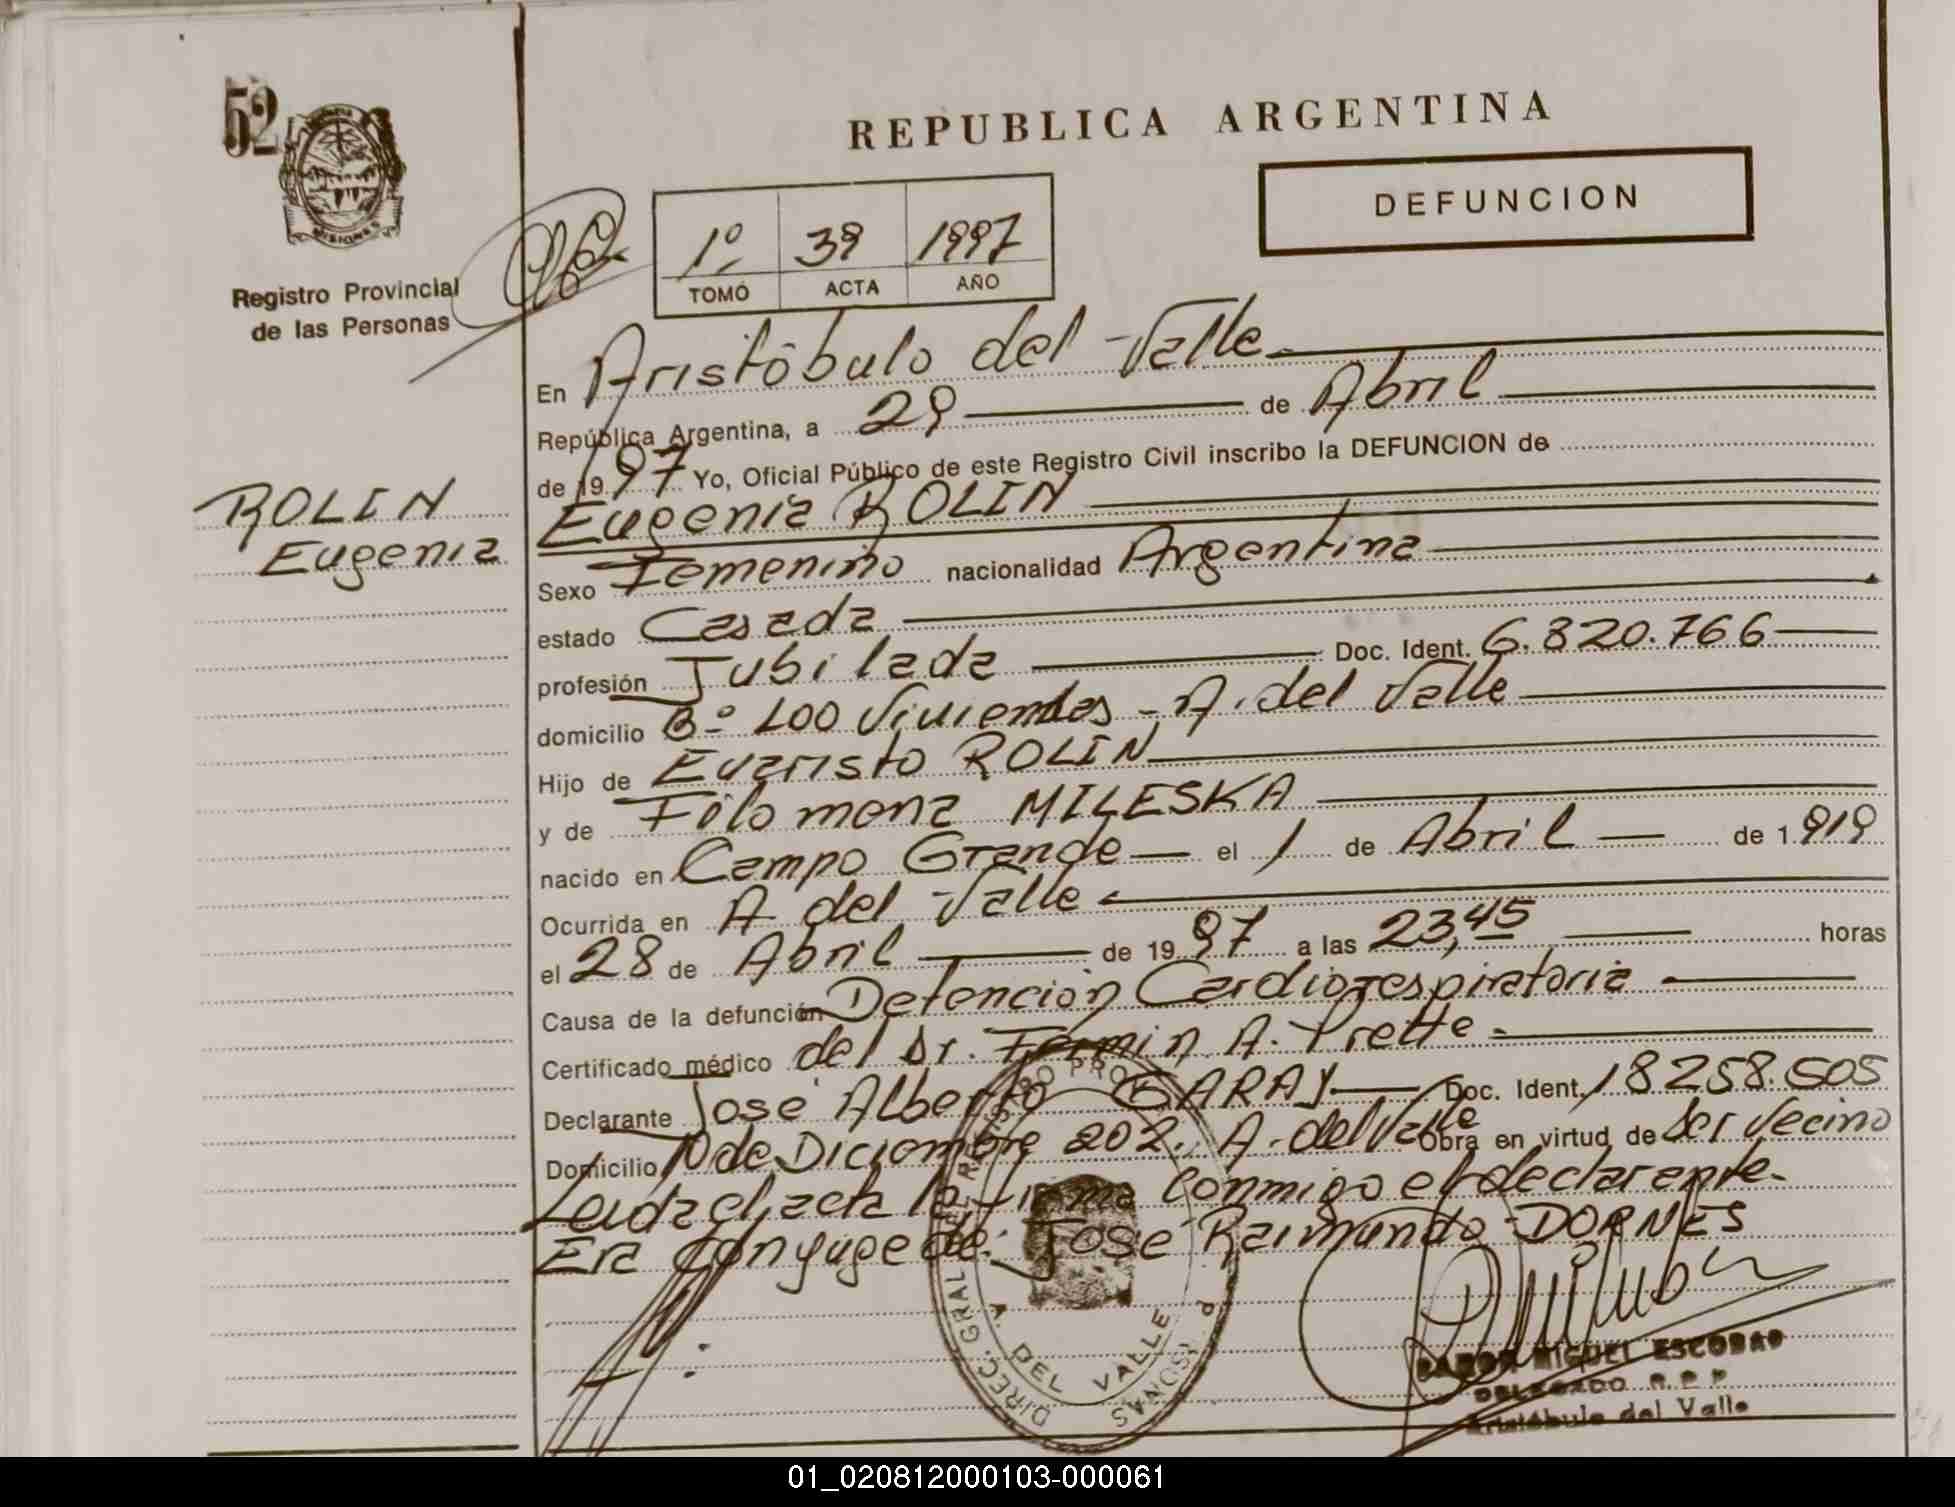 52
REPUBLICA ARGENTINA
DEFUNCION
MISIONES
Registro Provincial
de las Personas
1º 39 1997
TOMO ACTA AÑO
En Aristóbulo del Valle
República Argentina, a 29 de Abril
de 1997 Yo, Oficial Público de este Registro Civil inscribo la DEFUNCION de
ROLIN
Eugenia
Eugenia ROLIN
Sexo Femenino nacionalidad Argentina
estado Casada
profesión Jubilada Doc. Ident. 6.820.766
domicilio Bº 100 Viviendas - A. del Valle
Hijo de Evaristo ROLIN
y de Filomena MILESKA
nacido en Campo Grande el 1 de Abril de 1.919
Ocurrida en A del Valle
el 28 de Abril de 1997 a las 23,45 horas
Causa de la defunción Detención Cardiorrespiratoria
Certificado médico del Dr. Fermin A. Prette
Declarante José Alberto GARAY Doc. Ident. 18258.505
Domicilio 10 de Diciembre 202. A. del Valle Obra en virtud de ser vecino
Leida el acta la firma conmigo el declarante.
Era conyuge de: José Raimundo DORNES
DIREC. GRAL DEL REGISTRO PROV.
A. DEL VALLE
RAMON MIGUEL ESCOBAR
DELEGADO R.P.P
Aristóbulo del Valle
01_020812000103-000061